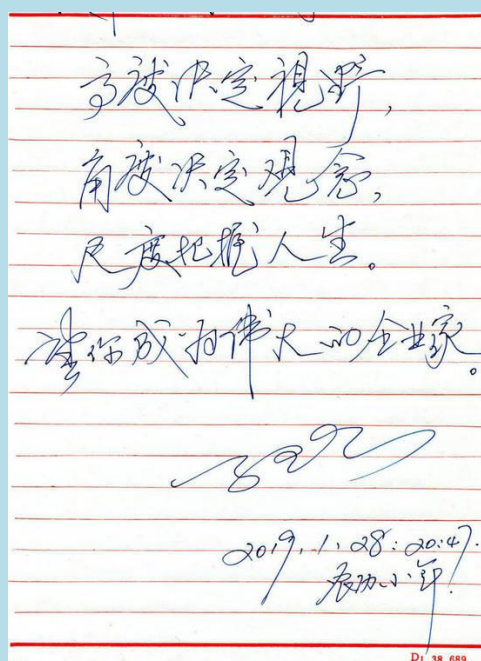 高度决定視野,
角度决定观念,
尺度把握人生。
望你成为伟大的企业家。
2019.1.28:20:47.
农历小年.
D1 38 689